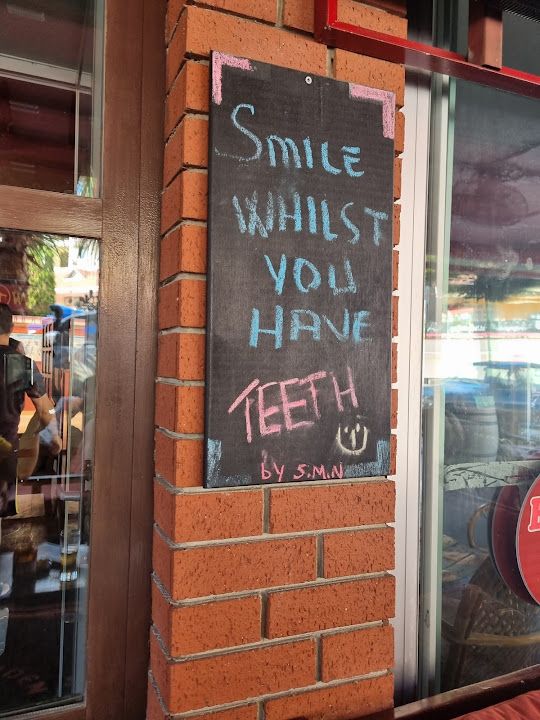 SMILE
WHILST
YOU
HAVE
TEETH
by S.M.N